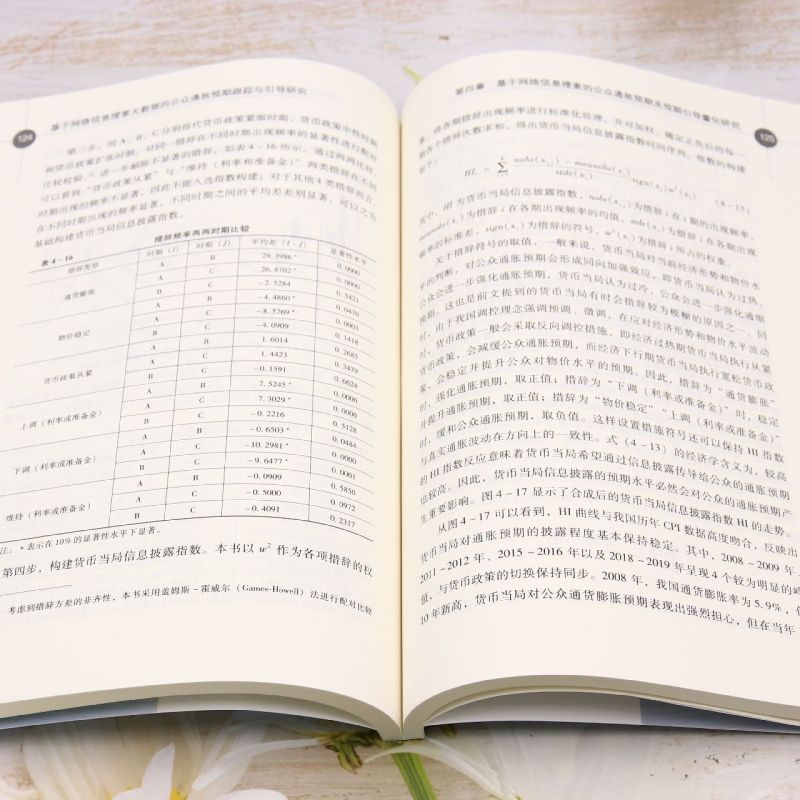 124 基于网络信息搜索大数据的公众通胀预期跟踪与引导研究
第三步，用 A、B、C 分别指代货币政策紧缩时期、货币政策中性时期
和货币政策扩张时期，对同一措辞在不同时期出现频率的显著性进行配对
比较检验，① 进一步删除不显著的措辞，如表 4-16 所示。通过两两对比，
可以看到“货币政策从紧”与“维持（利率和准备金）”两类措辞在不同
时期出现的频率不显著，因此不能入选指数构建；对于其他 4 类措辞而言，
在不同时期出现的频率显著，不同时期之间的平均差差别显著，可以之为
基础构建货币当局信息披露指数。
表 4-16 措辞频率两两时期比较
措辞类型 时期（I） 时期（J） 平均差（I-J） 显著性水平
通货膨胀 A B 29.3986* 0.0000
A C 26.8702* 0.0000
B C -2.5284 0.5421
物价稳定 A B -4.4860* 0.0470
A C -8.5769* 0.0003
B C -4.0909 0.1418
货币政策从紧 A B 1.6014 0.2685
A C 1.4423 0.3439
B C -0.1591 0.6624
上调（利率或准备金） A B 7.5245* 0.0000
A C 7.3029* 0.0006
B C -0.2216 0.5128
下调（利率或准备金） A B -0.6503* 0.0484
A C -10.2981* 0.0000
B C -9.6477* 0.0001
维持（利率或准备金） A B -0.0909 0.5850
A C -0.5000 0.0972
B C -0.4091 0.2317
注：* 表示在 10% 的显著性水平下显著。
第四步，构建货币当局信息披露指数。本书以 w² 作为各项措辞的权
考虑到措辞方差的非齐性，本书采用盖姆斯-霍威尔（Games-Howell）法进行配对比较
第四章 基于网络信息搜索的公众通胀预期及预期引导量化研究 125
重，将各期措辞出现频率进行标准化处理，并对加权、确定正负后的每一
期各个措辞次数求和，得出货币当局信息披露指数时间序列，指数的构建
如下：
(4-13)
其中，HI 为货币当局信息披露指数，nobs(x_{i,t}) 为措辞 i 在 t 期的出现频率，
meanobs(x_i) 为措辞 i 在各期出现频率的均值，stde(x_i) 为措辞 i 在各期出现
频率的标准差，sign(x_i) 为措辞的符号，w²(x_i) 为措辞 i 所占的权重。
关于措辞符号的取值，一般来说，货币当局对当前经济形势和物价水
平的判断，对公众通胀预期会形成同向加强效应，即货币当局认为过热，
公众会进一步强化通胀预期，货币当局认为过冷，公众会进一步强化通缩
预期。这也是前文提到的货币当局有时会措辞较为模糊的原因之一。同
时，由于我国调控理念强调预调、微调，在应对经济形势和物价水平波动
时，货币政策一般会采取反向调控措施，即经济过热期货币当局执行从紧
货币政策，会减缓公众通胀预期，而经济下行期货币当局执行宽松货币政
策，会稳定并提升公众对物价水平的预期。因此，措辞为“通货膨胀”
时，强化通胀预期，取正值；措辞为“下调（利率或准备金）”时，稳定
并提升通胀预期，取正值；措辞为“物价稳定”“上调（利率或准备金）”
时，缓和公众通胀预期，取负值。这样设置措施符号还可以保持 HI 指数
与真实通胀波动在方向上的一致性。式（4-13）的经济学含义为，较高
的 HI 指数反应意味着货币当局希望通过信息披露传导给公众的通胀预期
也较高。因此，货币当局信息披露的预期水平必然会对公众的通胀预期产
生重要影响。图 4-17 显示了合成后的货币当局信息披露指数 HI 的走势。
从图 4-17 可以看到，HI 曲线与我国历年 CPI 数据高度吻合，反映出
货币当局对通胀预期的披露程度基本保持稳定。其中，2008-2009 年、
2011-2012 年、2015-2016 年以及 2018-2019 年呈现 4 个较为明显的峰
值，与货币政策的切换保持同步。2008 年，我国通货膨胀率为 5.9%，创
10 年新高，货币当局对公众通货膨胀预期表现出强烈担心，但在当年